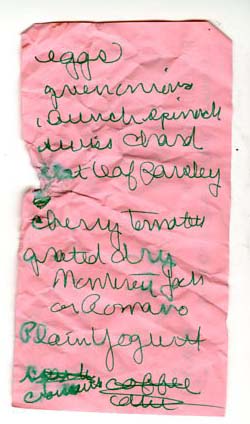 eggs
green onions
1 bunch spinach
swiss chard
flat leaf Parsley
cherry tomatoes
grated dry
Monterey Jack
or Romano
Plain Yogurt
coffee
croissants